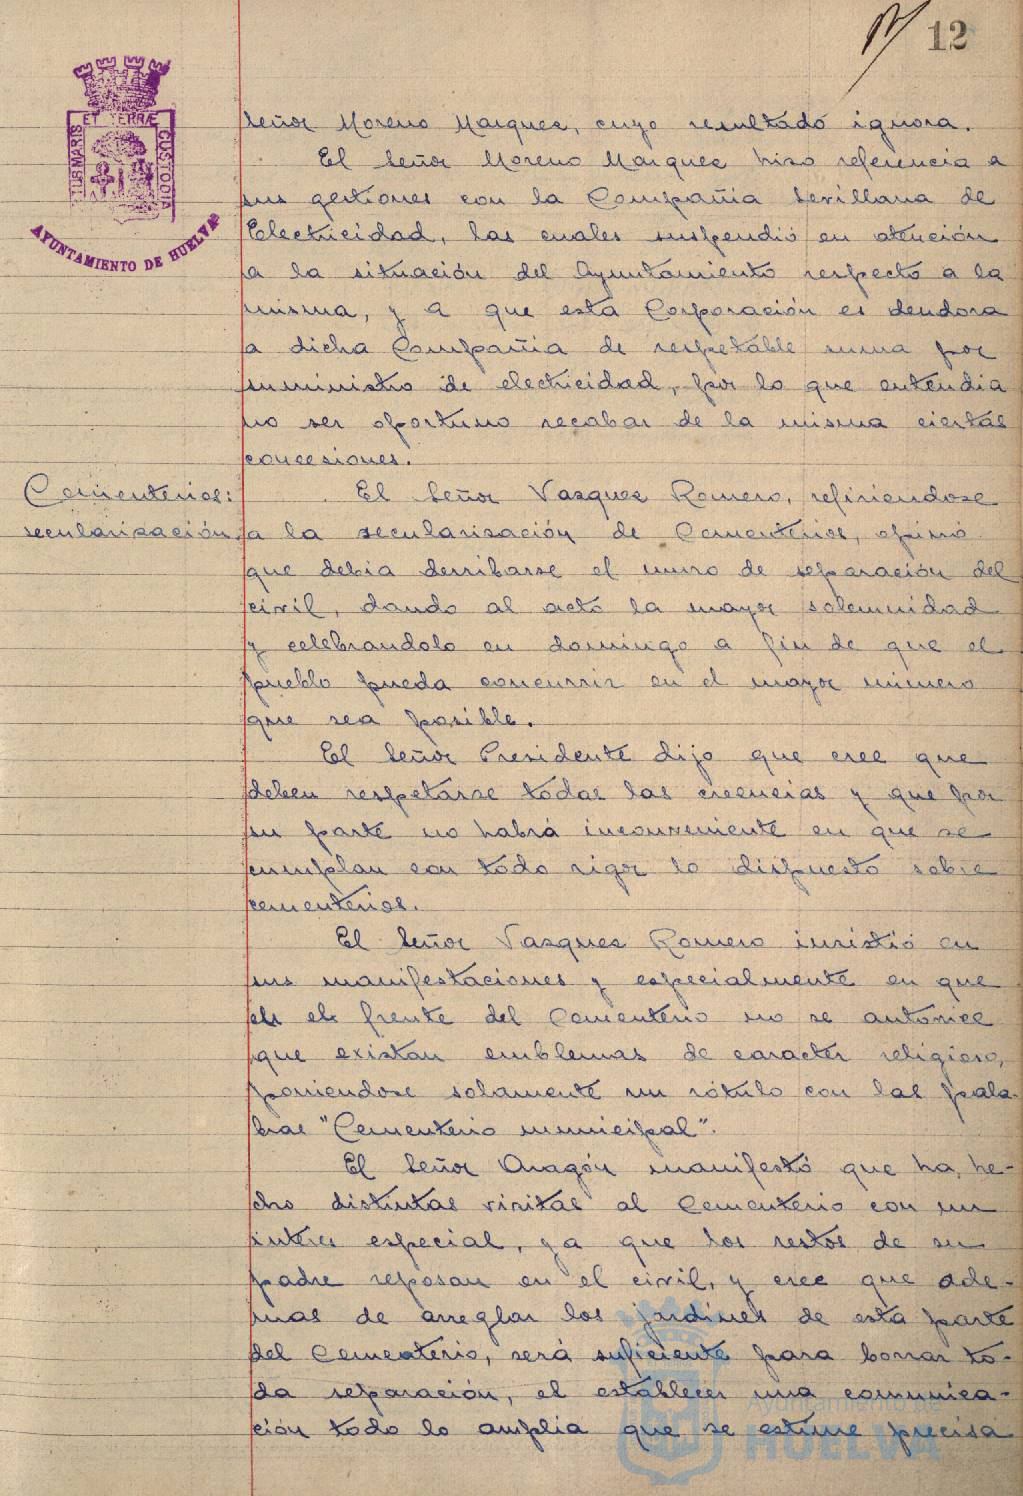 12
PORTUS MARIS ET TERRÆ CUSTODIA
AYUNTAMIENTO DE HUELVA
Señor Moreno Marquez, cuyo resultado ignora.
El Señor Moreno Marquez hizo referencia a
sus gestiones con la Compañia Sevillana de
Electricidad, las cuales suspendió en atención
a la situación del Ayuntamiento respecto a la
misma, y a que esta Corporación es deudora
a dicha Compañia de respetable suma por
suministro de electricidad, por lo que entendia
no ser oportuno recabar de la misma ciertas
concesiones.
Cementerios:
secularización.
El Señor Vazquez Romero, refiriendose
a la secularización de Cementerios, opinó
que debia derribarse el muro de separación del
civil, dando al acto la mayor solemnidad
y celebrandolo en domingo a fin de que el
pueblo pueda concurrir en el mayor número
que sea posible.
El Señor Presidente dijo que cree que
deben respetarse todas las creencias y que por
su parte no habrá inconveniente en que se
cumplan con todo rigor lo dispuesto sobre
cementerios.
El Señor Vazquez Romero insistió en
sus manifestaciones y especialmente en que
el frente del Cementerio no se autorice
que existan emblemas de caracter religioso,
poniendose solamente un rótulo con las pala-
bras "Cementerio municipal".
El Señor Aragón manifestó que ha he-
cho distintas visitas al Cementerio con un
interes especial, ya que los restos de su
padre reposan en el civil, y cree que ade-
mas de arreglar los jardines de esta parte
del Cementerio, será suficiente para borrar to-
da separación, el establecer una comunica-
ción todo lo amplia que se estime precisa
Ayuntamiento de
HUELVA